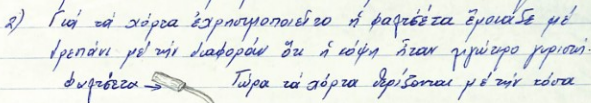 2) Γιά τά χόρτα ἐχρησιμοποιεῖτο ἡ φαλτσέτα ἔμοιαζε μέ
δρεπάνι μέ τήν διαφοράν ὅτι ἡ κόψη ἦταν λιγώτερο γυριστή.
φαλτσέτα → Τώρα τά χόρτα θερίζονται μέ τήν κόσα